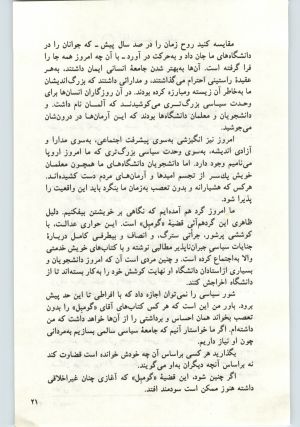 مقایسه کنید روح زمان را در صد سال پیش ـ که جوانان را در
دانشگاه‌های ما جان داد و به‌حرکت در آورد ـ با آن چه امروز همه جا را
فرا گرفته است. آن‌ها به‌بهتر شدن جامعهٔ انسانی ایمان داشتند، به‌هر
عقیدهٔ راستینی احترام می‌گذاشتند، و مدارائی داشتند که بزرگ‌اندیشان
ما به‌خاطر آن زیسته ومبارزه کرده بودند. در آن روزگاران انسان‌ها برای
وحدت سیاسی بزرگ‌تری می‌کوشیدند که آلمان نام داشت. و
دانشجویان و معلمان دانشگاه‌ها بودند که این آرمان‌ها در درون‌شان
می‌جوشید.
امروز نیز انگیزشی به‌سوی پیشرفت اجتماعی، به‌سوی مدارا و
آزادی اندیشه، به‌سوی وحدت سیاسی بزرگ‌تری که ما امروز اروپا
می‌نامیم وجود دارد. اما دانشجویان دانشگاه‌های ما همچون معلمان
خویش یك‌سر از تجسم امیدها و آرمان‌های مردم دست کشیده‌اند.
هرکس هشیارانه و بدون تعصب به‌زمان ما بنگرد باید این واقعیت را
بپذیرد.
ما امروز گرد هم آمده‌ایم که نگاهی بر خویشتن بیفکنیم. دلیل
ظاهری این گردهم‌آئی قضیهٔ «گومپل» است. این حواری عدالت، با
کوششی پرشور، جرأتی سترگ، و انصاف و بیطرفی کامل دربارهٔ
جنایات سیاسی جبران‌ناپذیر مطالبی نوشته و با کتاب‌های خویش خدمتی
والا به‌اجتماع کرده است. و چنین مردی است آن که امروز دانشجویان و
بسیاری ازاستادان دانشگاه او نهایت کوشش خود را به‌کار بسته‌اند تا از
دانشگاه اخراجش کنند.
شور سیاسی را نمی‌توان اجازه داد که با افراطی تا این حد پیش
برود. باور من این است که هر کس کتاب‌های آقای «گومپل» را بدون
تعصب بخواند همان احساس و برداشتی را از آن‌ها خواهد داشت که من
داشته‌ام. اگر ما خواستار آنیم که جامعهٔ سیاسی سالمی بسازیم به‌مردانی
چون او نیاز داریم.
بگذارید هر کسی براساس آن چه خودش خوانده است قضاوت کند
نه براساس آنچه دیگران به‌او می‌گویند.
اگر چنین شود، این قضیهٔ «گومپل» که آغازی چنان غیراخلاقی
داشته هنوز ممکن است سودمند افتد.
۲۱